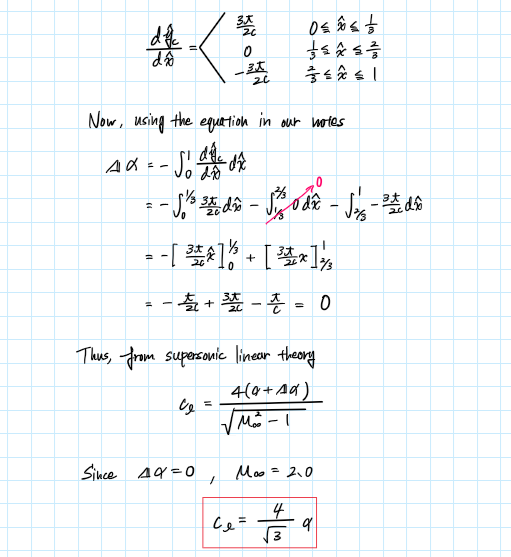 dŷc/dx̂ = { 3t/2c 0 ≤ x̂ ≤ 1/3
0 1/3 ≤ x̂ ≤ 2/3
-3t/2c 2/3 ≤ x̂ ≤ 1
Now, using the equation in our notes
Δα = -∫₀¹ dŷc/dx̂ dx̂
= -∫₀^1/3 3t/2c dx̂ - ∫_1/3^2/3 0 dx̂ - ∫_2/3^1 -3t/2c dx̂ 0
= -[3t/2c x̂]₀^1/3 + [3t/2c x]_2/3^1
= - t/2c + 3t/2c - t/c = 0
Thus, from supersonic linear theory
cℓ = 4(α + Δα) / √(M∞² - 1)
Since Δα = 0 , M∞ = 2.0
cℓ = 4/√3 α